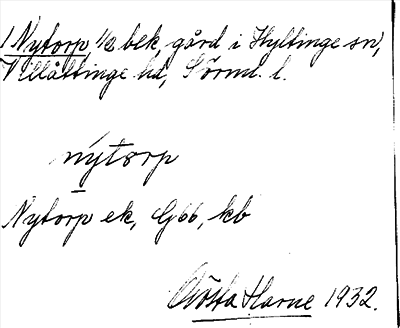 1 Nytorp, 1/2 bek. gård i Hyltinge sn,
Villåttinge hd, Sörml. l.
nytorp
Nytorp ek, G66, kb
Gösta Harne 1932.